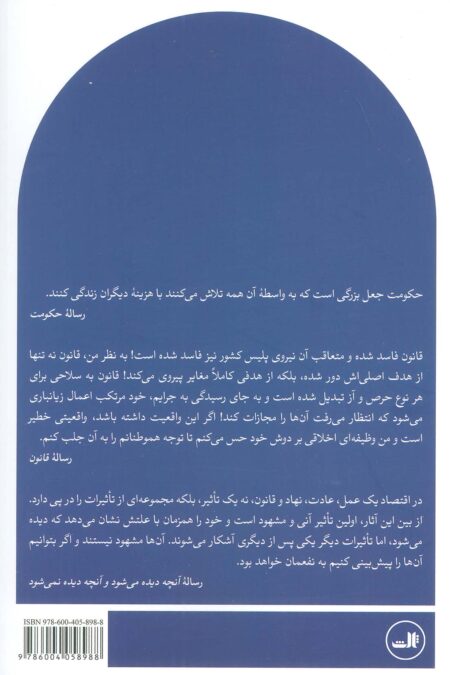 حکومت جعل بزرگی است که به واسطهٔ آن همه تلاش می‌کنند با هزینهٔ دیگران زندگی کنند.
رسالهٔ حکومت
قانون فاسد شده و متعاقب آن نیروی پلیس کشور نیز فاسد شده است! به نظر من، قانون نه تنها
از هدف اصلی‌اش دور شده، بلکه از هدفی کاملاً مغایر پیروی می‌کند! قانون به سلاحی برای
هر نوع حرص و آز تبدیل شده است و به جای رسیدگی به جرایم، خود مرتکب اعمال زیانباری
می‌شود که انتظار می‌رفت آن‌ها را مجازات کند! اگر این واقعیت داشته باشد، واقعیتی خطیر
است و من وظیفه‌ای اخلاقی بر دوش خود حس می‌کنم تا توجه هموطنانم را به آن جلب کنم.
رسالهٔ قانون
در اقتصاد یک عمل، عادت، نهاد و قانون، نه یک تأثیر، بلکه مجموعه‌ای از تأثیرات را در پی دارد.
از بین این آثار، اولین تأثیر آنی و مشهود است و خود را همزمان با علتش نشان می‌دهد که دیده
می‌شود، اما تأثیرات دیگر یکی پس از دیگری آشکار می‌شوند. آن‌ها مشهود نیستند و اگر بتوانیم
آن‌ها را پیش‌بینی کنیم به نفعمان خواهد بود.
رسالهٔ آنچه دیده می‌شود و آنچه دیده نمی‌شود
ISBN 978-600-405-898-8
9 786004 058988
ثالث